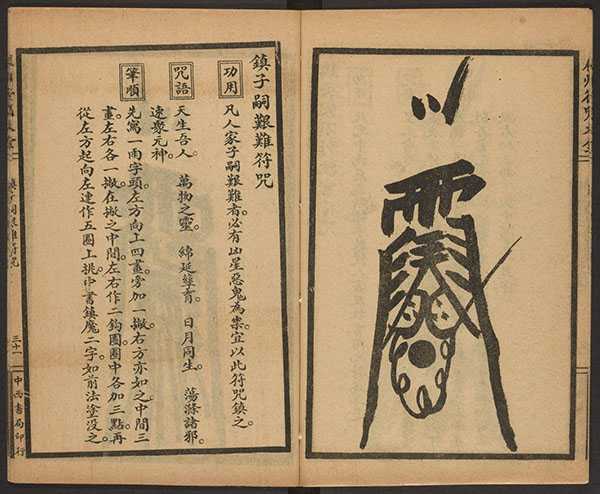 鎮子嗣艱難符咒
功用
凡人家子嗣艱難者。必有凶星惡鬼為祟。宜以此符咒鎮之。
咒語
天生吾人。萬物之靈。綿延螽育。日月同生。蕩滌諸邪。
速衆元神。
筆順
先寫一雨字頭。左方向上四畫。旁加一撇。右方亦如之。中間三
畫。左右各一撇。在撇之中間。左右作二鈎圈。圈中各加三點。再
從左方起向左連作五圈上挑。中書鎮魔二字。如前法塗沒之。
鎮子嗣艱難符咒
三十一
中西書局印行